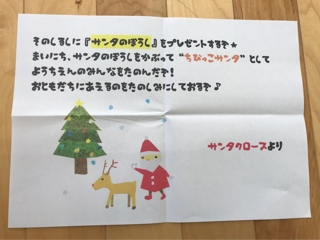 そのしるしに『サンタのぼうし』をプレゼントするぞ★
まいにち、サンタのぼうしをかぶって“ちびっこサンタ”として
ようちえんのみんなをたのんだぞ！
おともだちにあえるのをたのしみにしておるぞ♪
サンタクロースより